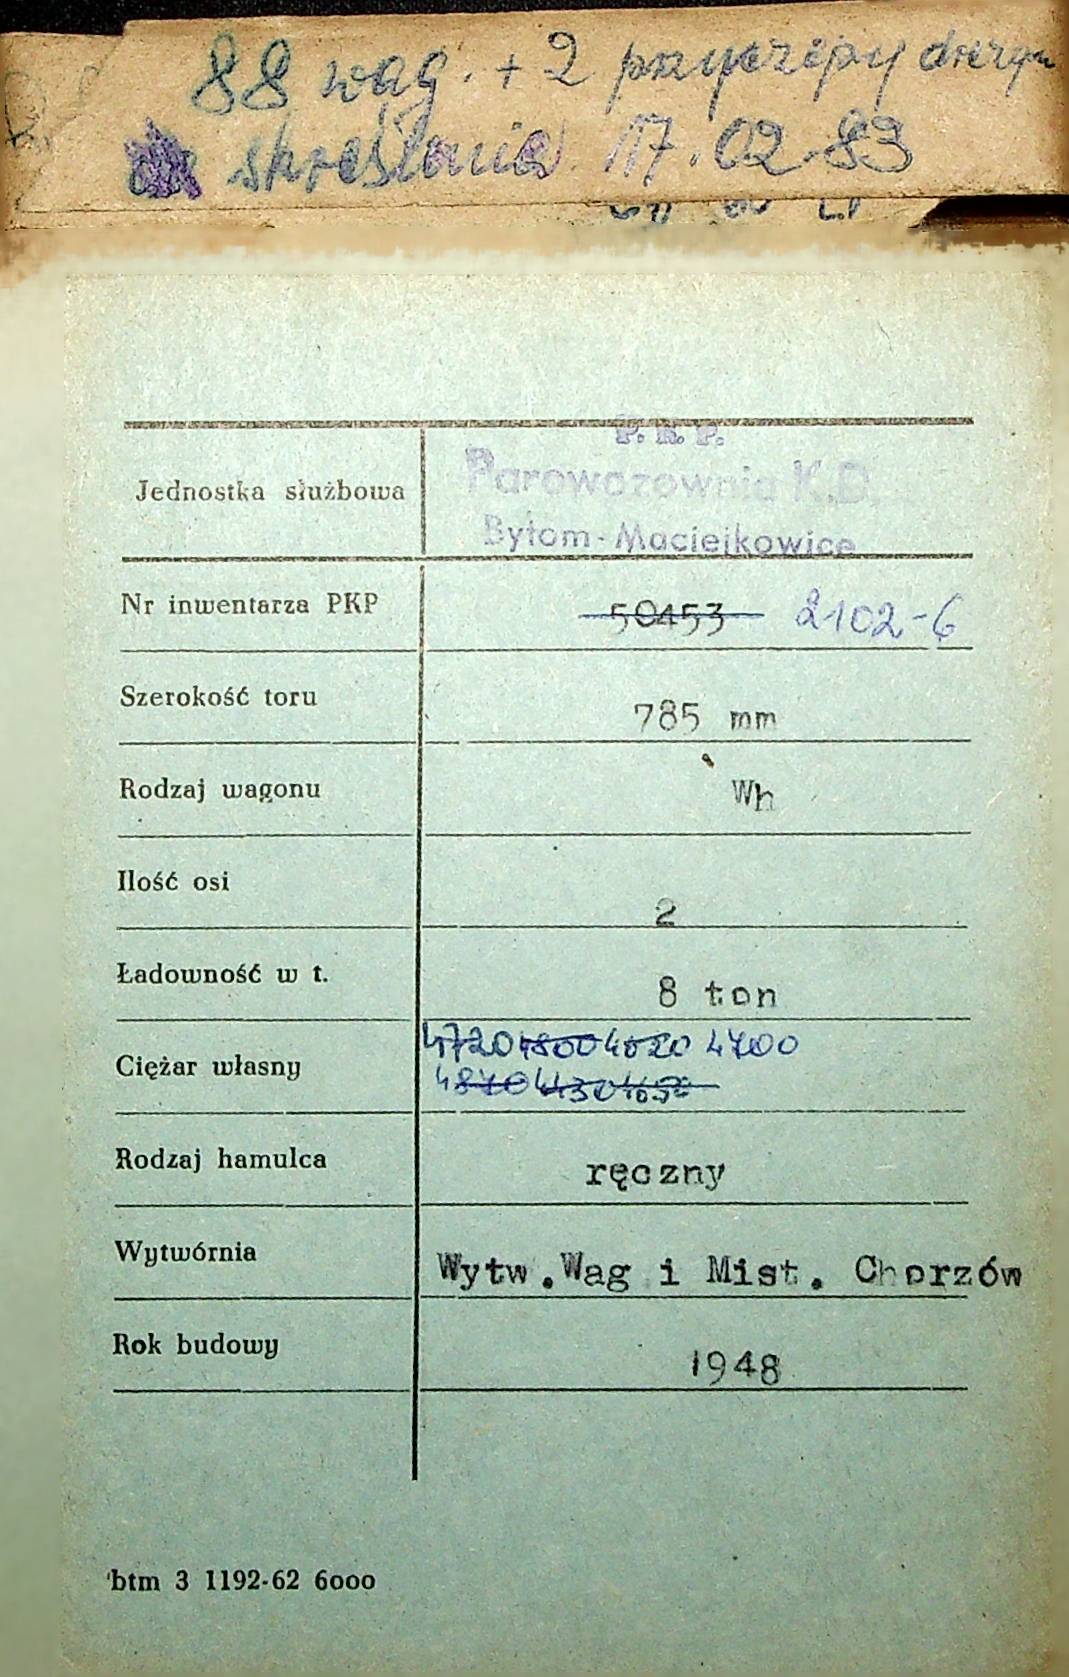 88 wag. + 2 przyczepy drezyn
skreślenie 17.02.83
P. K. P.
Parowozownia K.D.
Jednostka służbowa
Bytom-Maciejkowice
Nr inwentarza PKP 50453 2102-6
Szerokość toru 785 mm
Rodzaj wagonu Wh
Ilość osi 2
Ładowność w t. 8 ton
4720 4800 4700
Ciężar własny
Rodzaj hamulca ręczny
Wytwórnia Wytw.Wag i Mist. Chorzów
Rok budowy 1948
btm 3 1192-62 6000